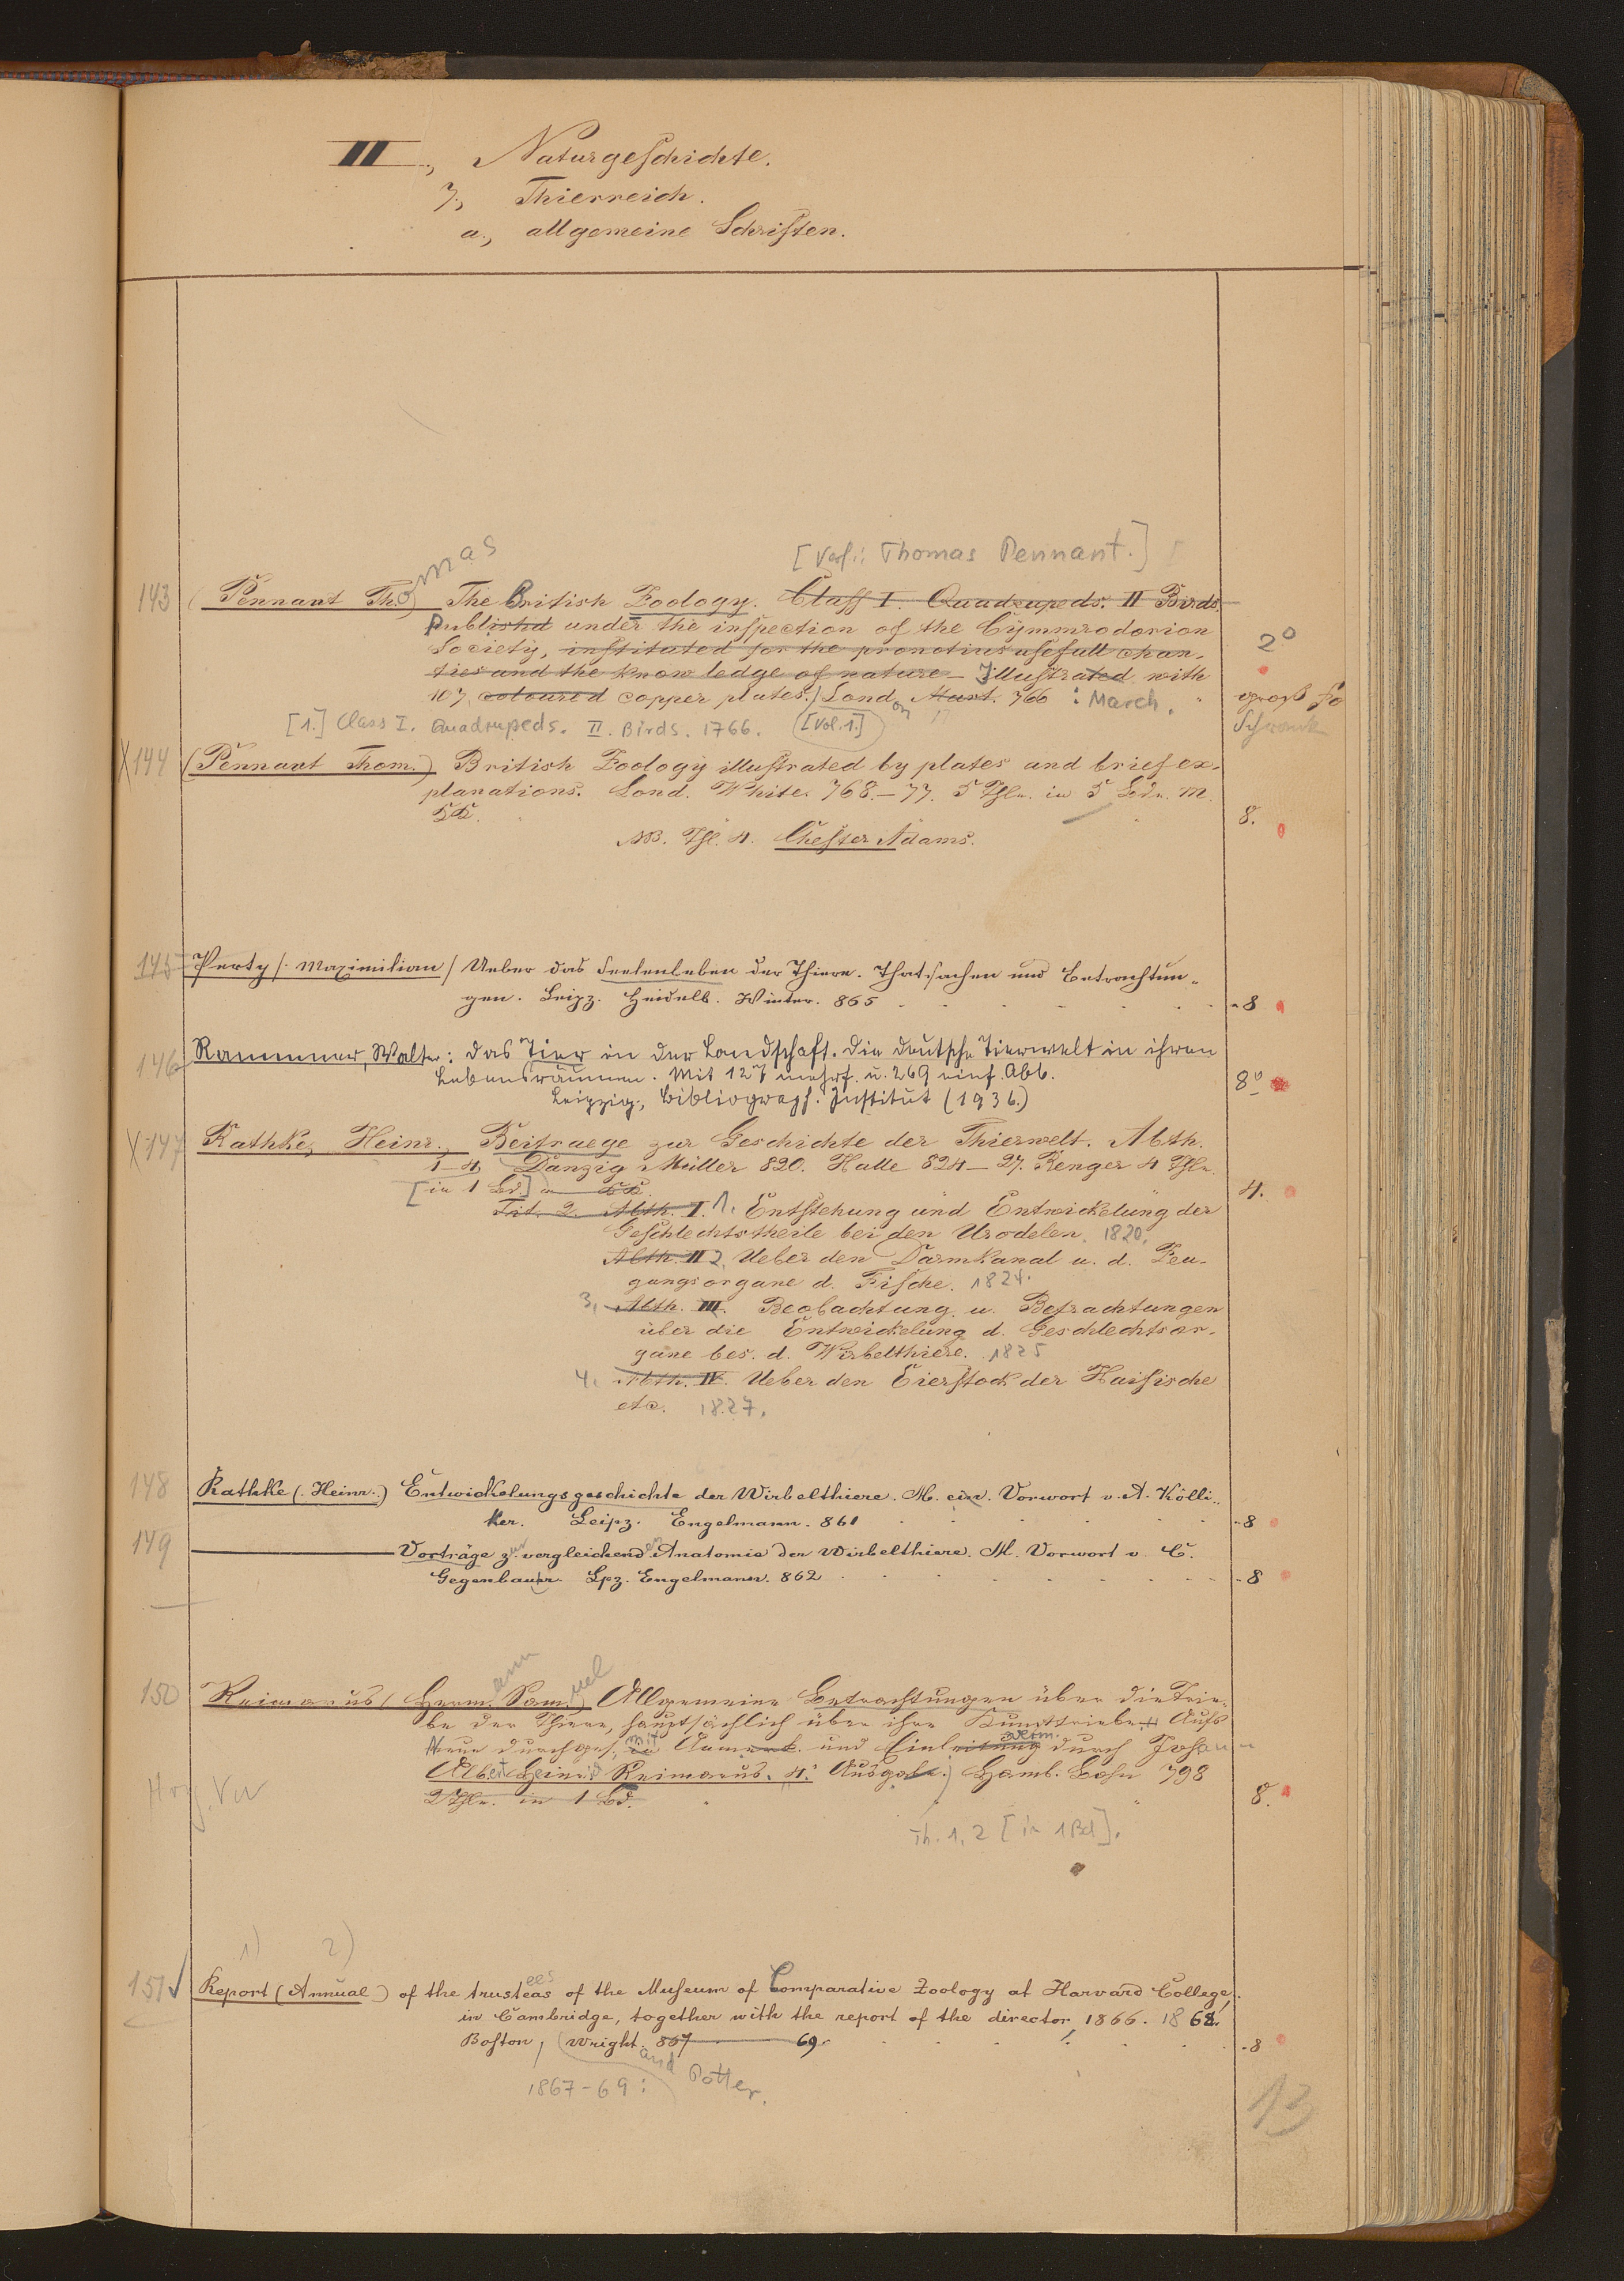 II., Naturgeschichte.
7., Thierreich.
a., allgemeine Schriften.
mas
[Verf.: Thomas Pennant.]
143 (Pennant Tho) The British Zoology. Class I. Quadrupeds. II Birds.
Publishd under the inspection of the Cymmrodorion
Society, instituted for the promotius usefull chari-
ties and the know ledge of nature - Illustrated with
107, coloured copper plates.) London Mart. 766 : March.
2°
groß fo
Schrank
[1.] Class I. Quadrupeds. II. Birds. 1766. [Vol.1.]
X144 (Pennant Thom.) British Zoology illustrated by plates and brief ex-
planations. Lond. White. 768.-77. 5 Thle. in 5 Bdn. M.
KK. 8.
NB. Thl. 4. Chester Adams.
145 Perty /: Maximilian / Ueber das Seelenleben der Thiere. Thatsachen und Betrachtun-
gen. Leipz. Heidelb. Winter. 865 -8
146 Rammner, Walter: Das Tier in der Landschaft. Die deutsche Tierwelt in ihren
Lebensräumen. Mit 127 mehrf. u. 269 einf. Abb.
Leipzig:, Bibliograph. Institut (1936.) 8°
X147 Rathke, Heinr., Beitraege zur Geschichte der Thierwelt. Abth.
1-4, Danzig Müller 820. Halle 824-27. Renger 4 Thle.
[in 1 Bd.] m KK. 4.
Tit. 2. Abth. I. 1. Entstehung und Entwickelung der
Geschlechtstheile bei den Urodelen. 1820.
Abth. II 2. Ueber den Darmkanal u. d. Zeu-
gungsorgane d. Fische. 1824.
3, Abth. III. Beobachtung u. Betrachtungen
über die Entwickelung d. Geschlechtsor-
gane bes. d. Wirbelthiere. 1825
4. Abth. IV. Ueber den Eierstock der Haifische
etc. 1827.
148 Rathke (. Heinr..) Entwickelungsgeschichte der Wirbelthiere. M. ein. Vorwort v. A. Kölli-
ker. Leipz. Engelmann. 861 -8
149 Vorträge zur vergleichenden Anatomie der Wirbelthiere. M. Vorwort v. C.
Gegenbaur. Lpz. Engelmann. 862 -8
ann uel
150 Reimarus (Herm. Sam.) Allgemeine Betrachtungen über die Trie-
be der Thiere, hauptsächlich über ihre Kunsttriebe. Aufs
Neue durchges. mit Anmerk. und Einleitung durch Johann
Albert Heinrich Reimarus. 4. Ausgabe.) Hamb. Bohn 798
2 Thle. in 1 Bd. 8.
Th. 1, 2 [in 1 Bd].
1) 2)
151 Report (Annual) of the trustees of the Museum of Comparative Zoology at Harvard College,
in Cambridge, together with the report of the director 1866. 1868.
Boston, Wright. 867 69. -8
and Potter.
1867-69:
13